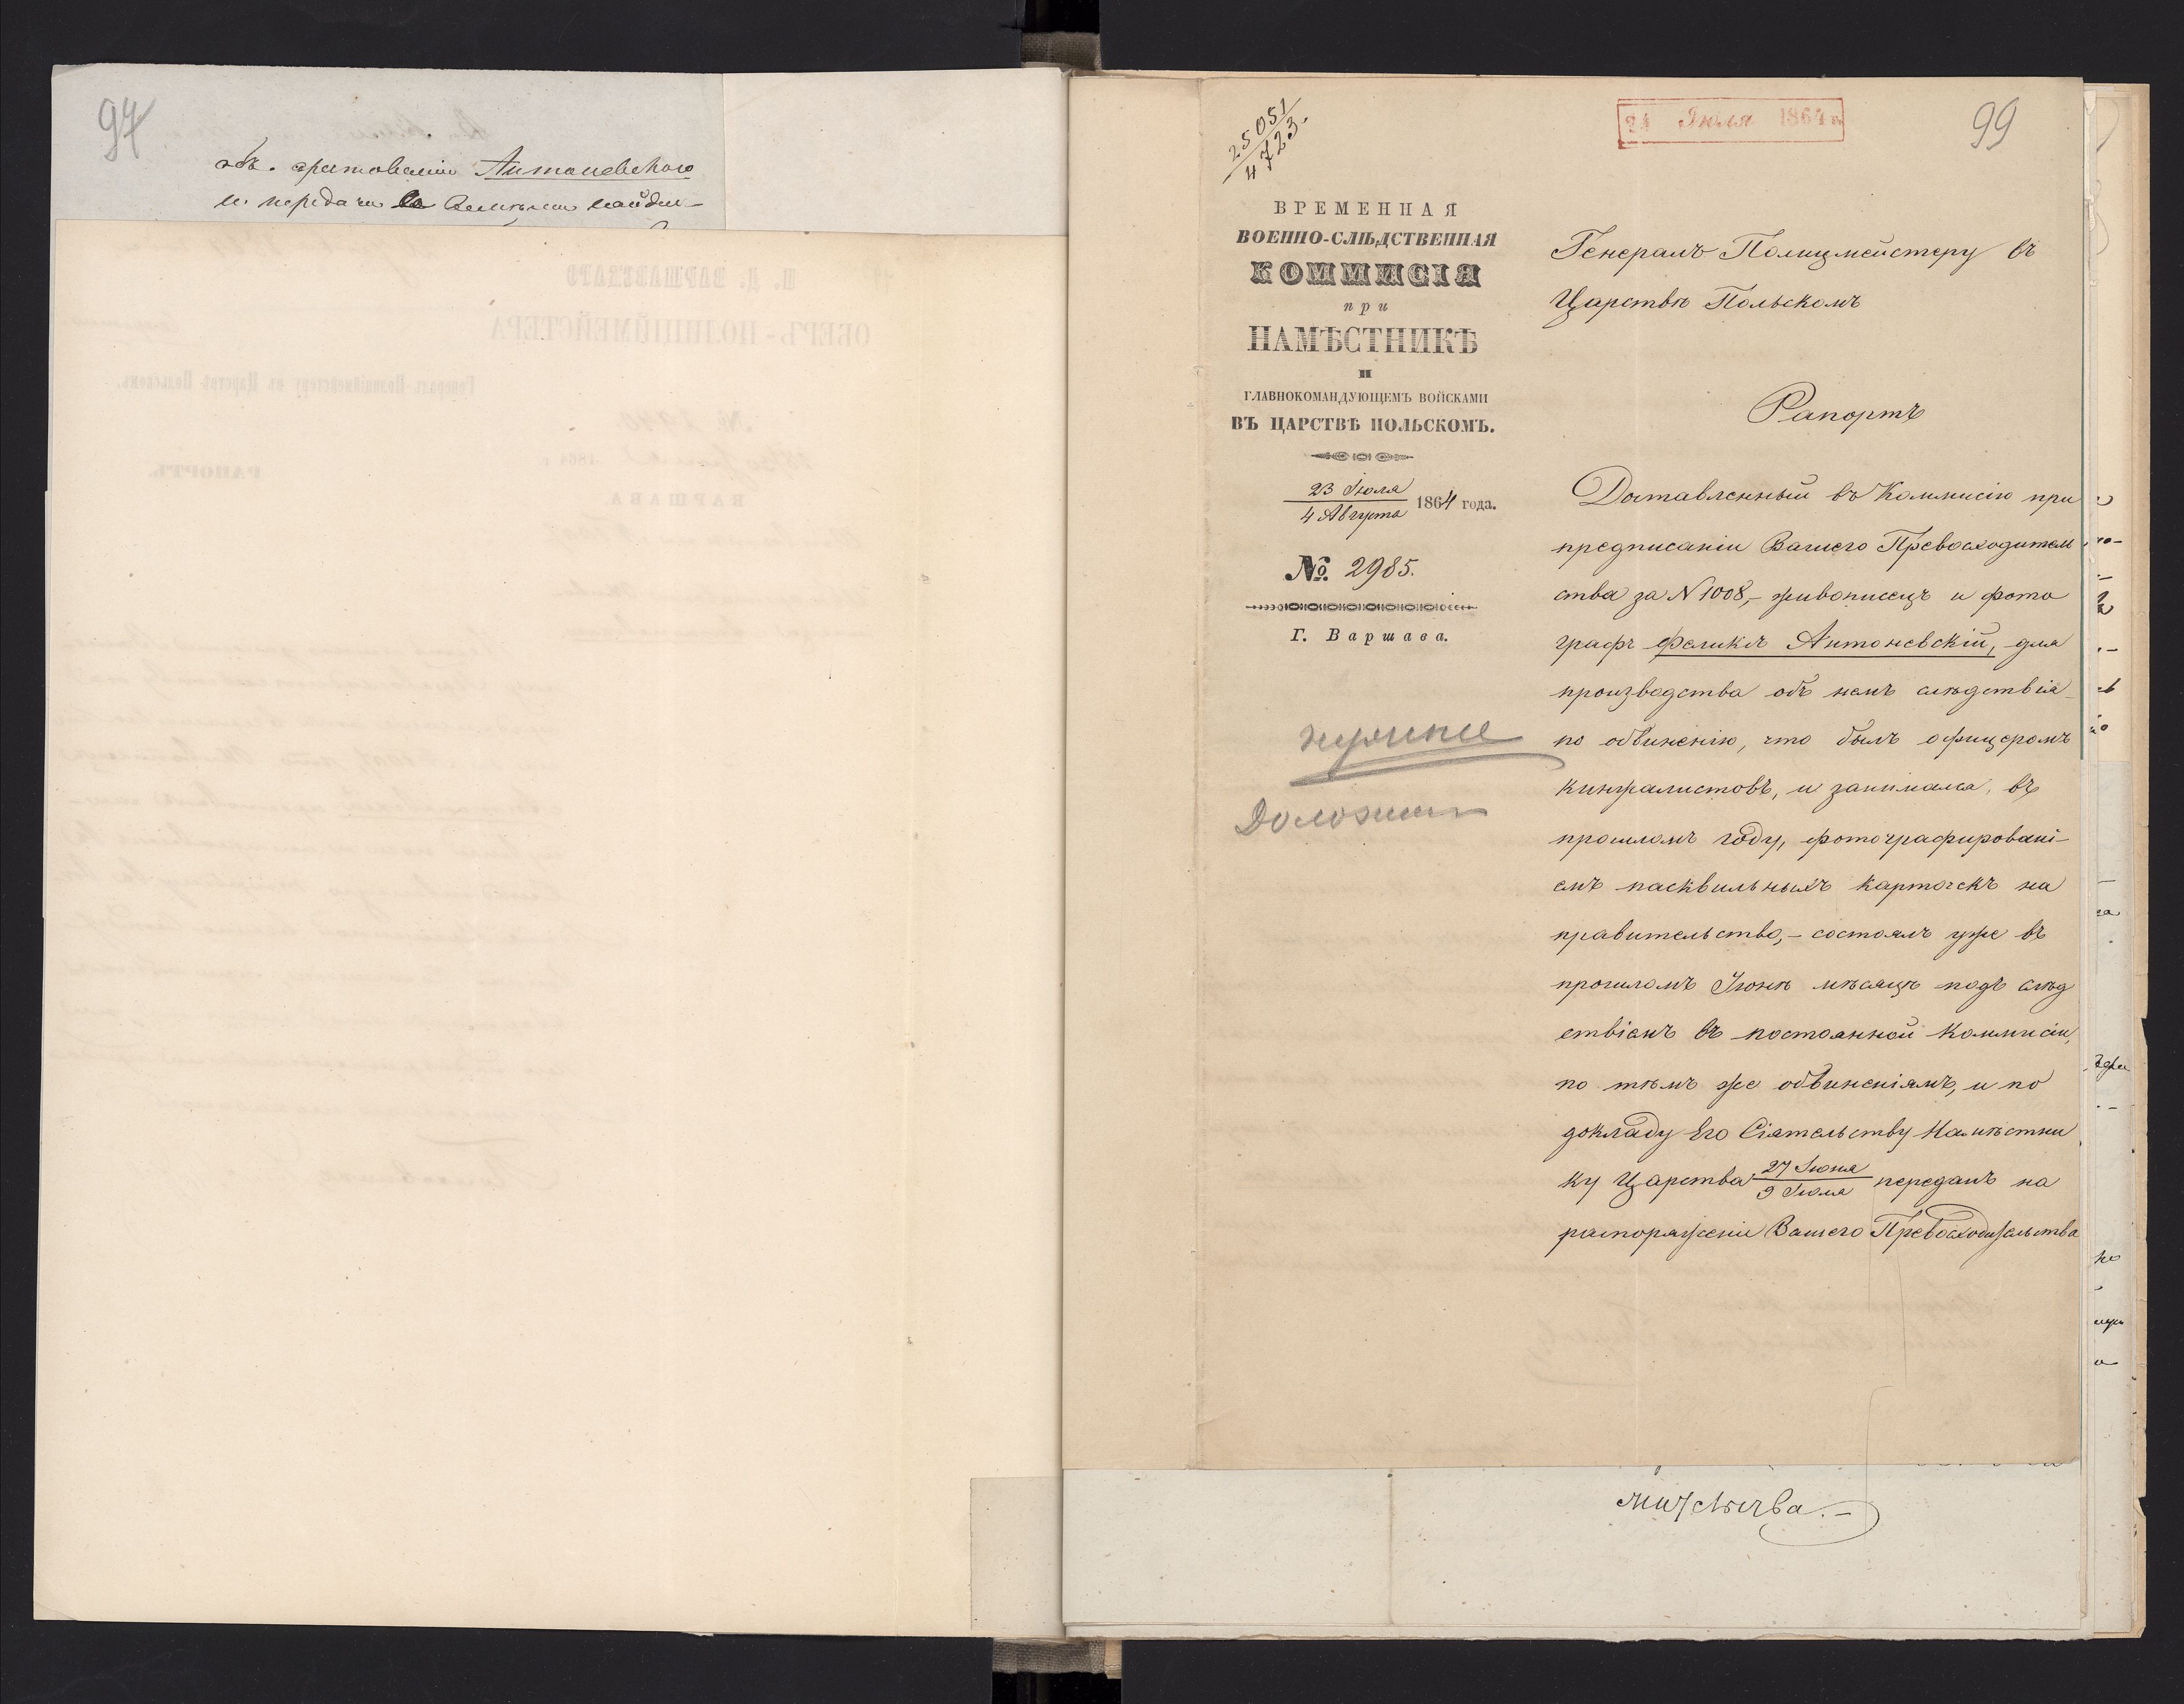 97
объ. арестованіи Антоневскаго
и передачи
99
25051
4723.
24 Іюля 1864 г.
ВРЕМЕННАЯ
ВОЕННО-СЛѢДСТВЕННАЯ
КОММИСІЯ
при
НАМѢСТНИКѢ
И
ГЛАВНОКОМАНДУЮЩЕМЪ ВОЙСКАМИ
ВЪ ЦАРСТВѢ ПОЛЬСКОМЪ.
23 Іюля
4 Августа 1864 года.
№ 2985.
Г. Варшава.
нужное
Доложить
Генералъ Полицмейстеру въ
Царствѣ Польскомъ
Рапортъ
Доставленный въ Коммисію при
предписаніи Вашего Превосходитель
ства за N 1008,- живописецъ и фото
графъ Феликсъ Антоневскій, для
производства объ немъ слѣдствія
по обвиненію, что былъ офицеромъ
кинжалистовъ, и занимался, въ
прошломъ году, фотографировані-
емъ пасквильныхъ карточекъ на
правительство,- состоялъ уже въ
прошломъ Іюнѣ мѣсяцѣ подъ слѣд
ствіемъ въ постоянной Коммисіи,
по тѣмъ же обвиненіямъ, и по
докладу Его Сіятельству Намѣстни
ку Царства 27 Іюня
9 Іюля переданъ на
распоряженіе Вашего Превосходительства